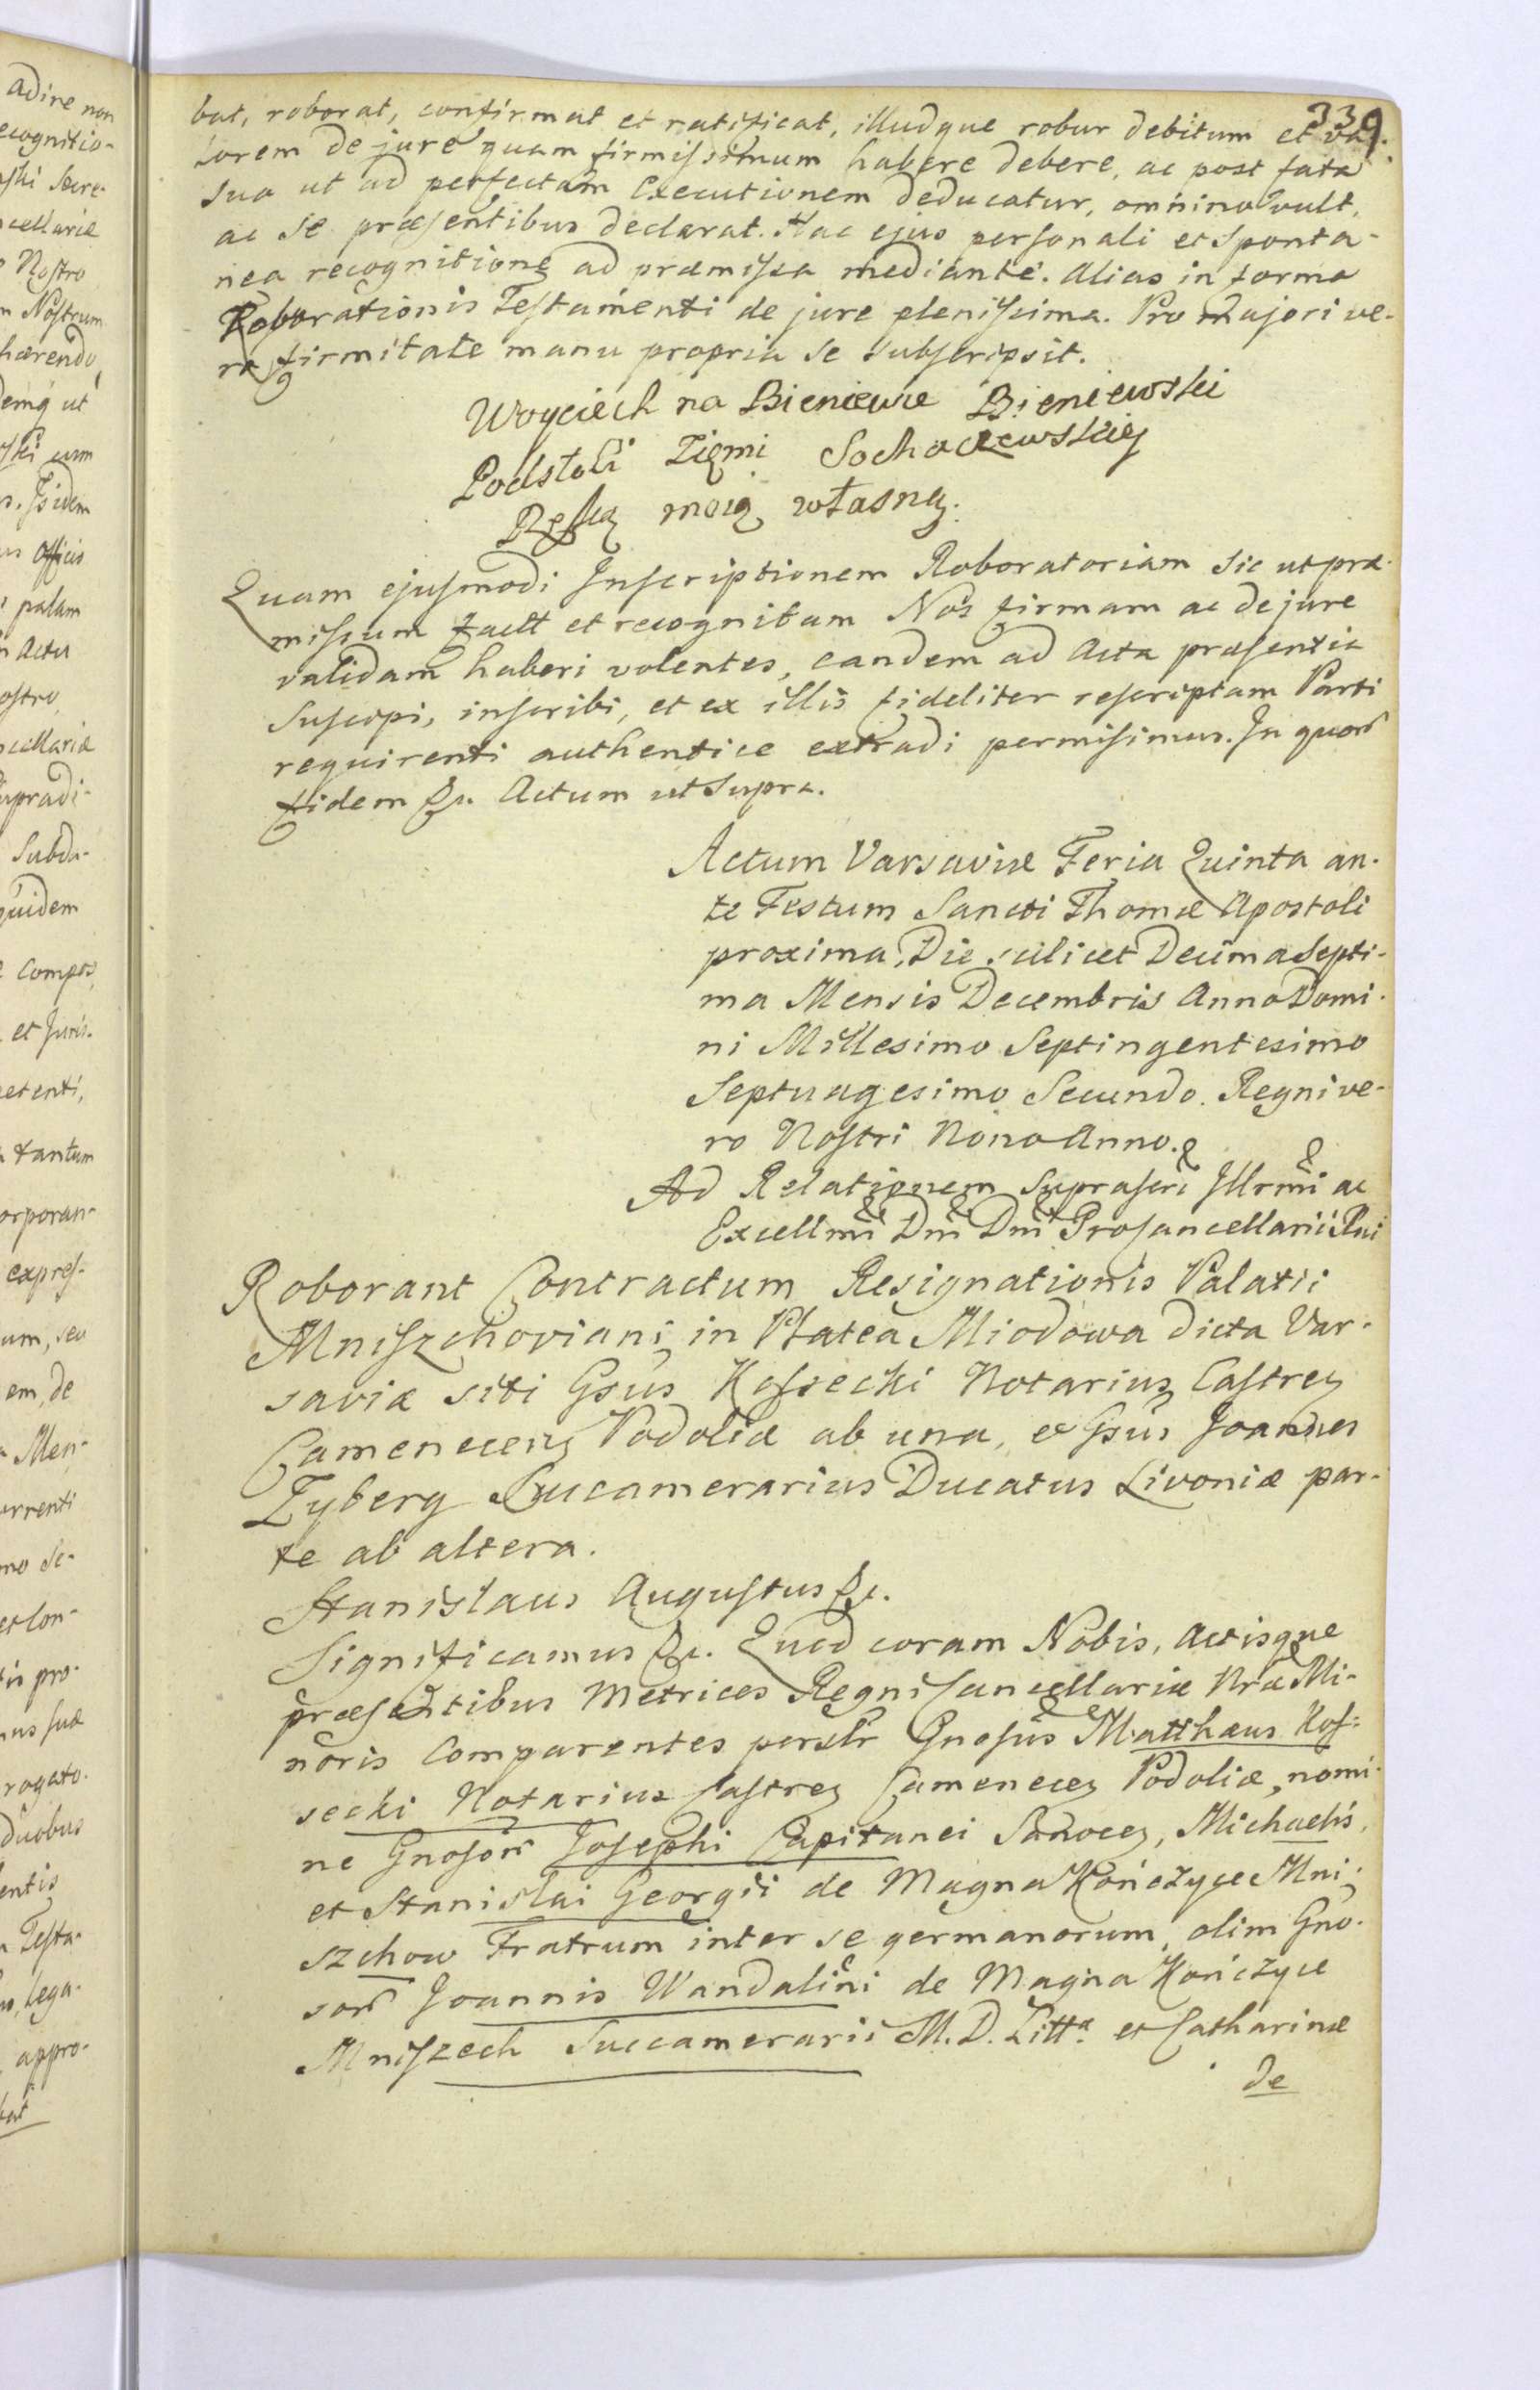 339
bat, roborat, confirmat et ratificat, illudque robur debitum et va-
lorem de jure quam firmissimum habere debere, ac post fata
sua ut ad perfectam Executionem deducatur, omnino vult,
ac se præsentibus declarat. Hac ejus personali et sponta-
nea recognitione ad præmissa mediante. Alias in forma
Roborationis Testamenti de jure plenissima. Pro majori ve-
ro firmitate manu propria se subscripsit.
Woyciech na Bieniewie Bieniewski
Podstoli Ziemi Sochaczewskiey
Ręką moią własną.
Quam ejusmodi Inscriptionem Roboratoriam sic ut præ-
missum factt et recognitam Nos firmam ac de jure
validam haberi volentes, eandem ad Acta præsentia
suscipi, inscribi, et ex illis fideliter rescriptam Parti
requirenti authentice extradi permisimus. In quorũ
fidem &c. Actum ut supra.
Actum Varsaviæ Feria Quinta an-
te Festum Sancti Thomæ Apostoli
proxima, Die scilicet Decima Septi-
ma Mensis Decembris Anno Domi-
ni Millesimo Septingentesimo
Septuagesimo Secundo. Regni ve-
ro Nostri Nono Anno.
Ad Relationem suprascri Illrmi ac
Excellmi Dni Dni Procancellarii Rni
Roborant Contractum Resignationis Palatii
Mniszchoviani in Platea Miodowa dicta Var-
saviæ siti Gsus Kossecki Notarius Castreṅ
Camenecenṡ Podoliæ ab una, et Gsus Joannes
Zyberg Succamerarius Ducatus Livoniæ par-
te ab altera.
Stanislaus Augustus &c.
Significamus &c. Quod coram Nobis, Actisque
præsentibus Metrices Regni Cancellariæ Nræ Mi-
noris Comparentes persltr Gnosus Matthæus Kos-
secki Notarius Castreṅ Cameneceṅ Podoliæ, nomi-
ne Gnosorũ Josephi Capitanei Sanoceṅ, Michaelis,
et Stanislai Georgii de Magna Kończyce Mni-
szchow Fratrum inter se germanorum, olim Gno-
sorũ Joannis Wandalini de Magna Kończyce
Mniszech Succamerarii M. D. Littæ et Catharinæ
de